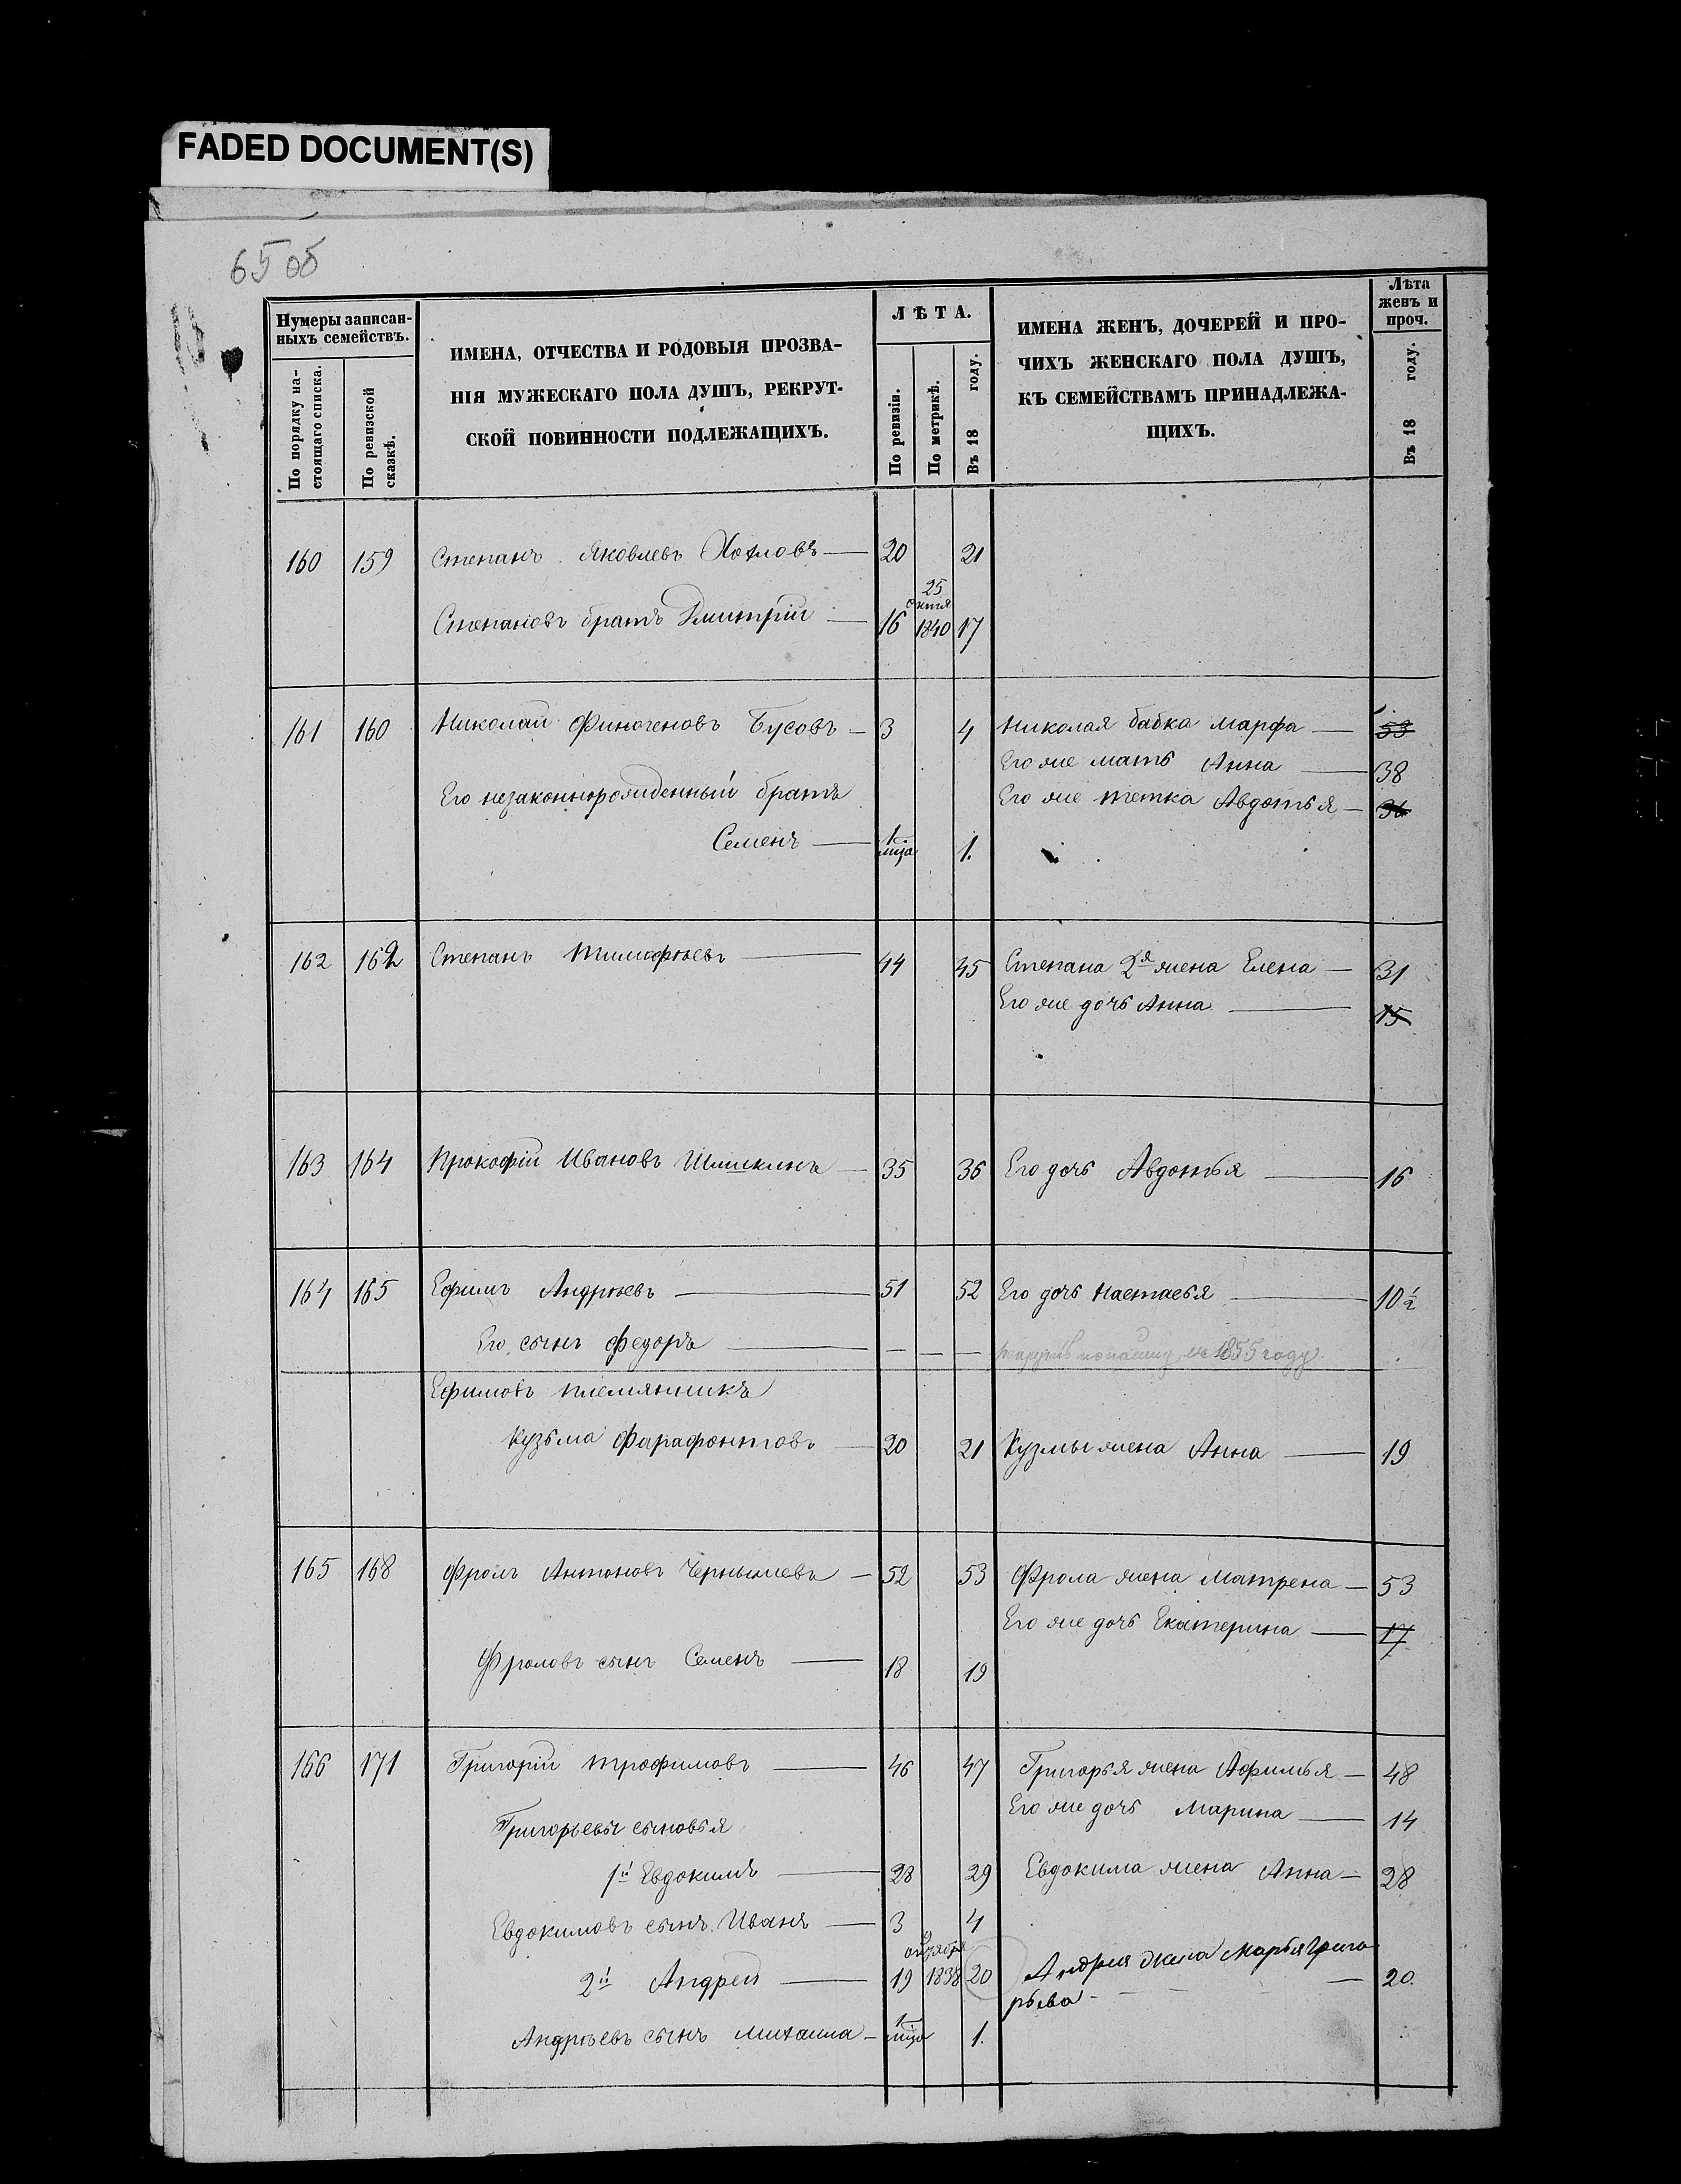 FADED DOCUMENT(S)
65 об
Нумеры записан-
ныхъ семействъ.
По порядку на-
стоящаго списка.
По ревизской
сказкѣ.
ИМЕНА, ОТЧЕСТВА И РОДОВЫЯ ПРОЗВА-
НІЯ МУЖЕСКАГО ПОЛА ДУШЪ, РЕКРУТ-
СКОЙ ПОВИННОСТИ ПОДЛЕЖАЩИХЪ.
ЛѢТА.
По ревизіи.
По метрикѣ.
Въ 18 году.
ИМЕНА ЖЕНЪ, ДОЧЕРЕЙ И ПРО-
ЧИХЪ ЖЕНСКАГО ПОЛА ДУШЪ,
КЪ СЕМЕЙСТВАМЪ ПРИНАДЛЕЖА-
ЩИХЪ.
Лѣта
женъ и
проч.
Въ 18 году.
160 159 Степанъ Яковлевъ — 20 21
25
октя
Степановъ братъ Дмитрій — 16 1840 17
161 160 Николай Бусовъ — 3 4 Николая бабка Марфа — 53
Его же мать Анна — 38
Его незаконнорожденный братъ Его же тетка Авдотья — 36
Семенъ — 1 мца 1.
162 162 Степанъ Тимофѣевъ — 44 45 Степана 2я жена Елена — 31
Его же дочь Анна — 15
163 164 Прокофій Ивановъ Шишкинъ — 35 36 Его дочь Авдотья — 16
164 165 Ефимъ Андрѣевъ — 51 52 Его дочь Настасья — 10½
Его сынъ Федоръ — — — — 1855 году
Ефимовъ племянникъ
Кузьма Фарафонтовъ — 20 21 Кузмы жена Анна — 19
165 168 Фролъ Антоновъ Чернышевъ — 52 53 Фрола жена Матрена — 53
Его же дочь Екатерина — 17
Фроловъ сынъ Семенъ — 18 19
166 171 Григорій Трофимовъ — 46 47 Григорья жена Афимья — 48
Его же дочь Марина — 14
Григорьевы сыновья
1й Евдокимъ — 28 29 Евдокима жена Анна — 28
Евдокимовъ сынъ Иванъ — 3 4
2й Андрей — 19 1838 20 Андрея жена Марья Григо
рьева — 20.
Андрѣевъ сынъ Михаила — 1 мца 1.